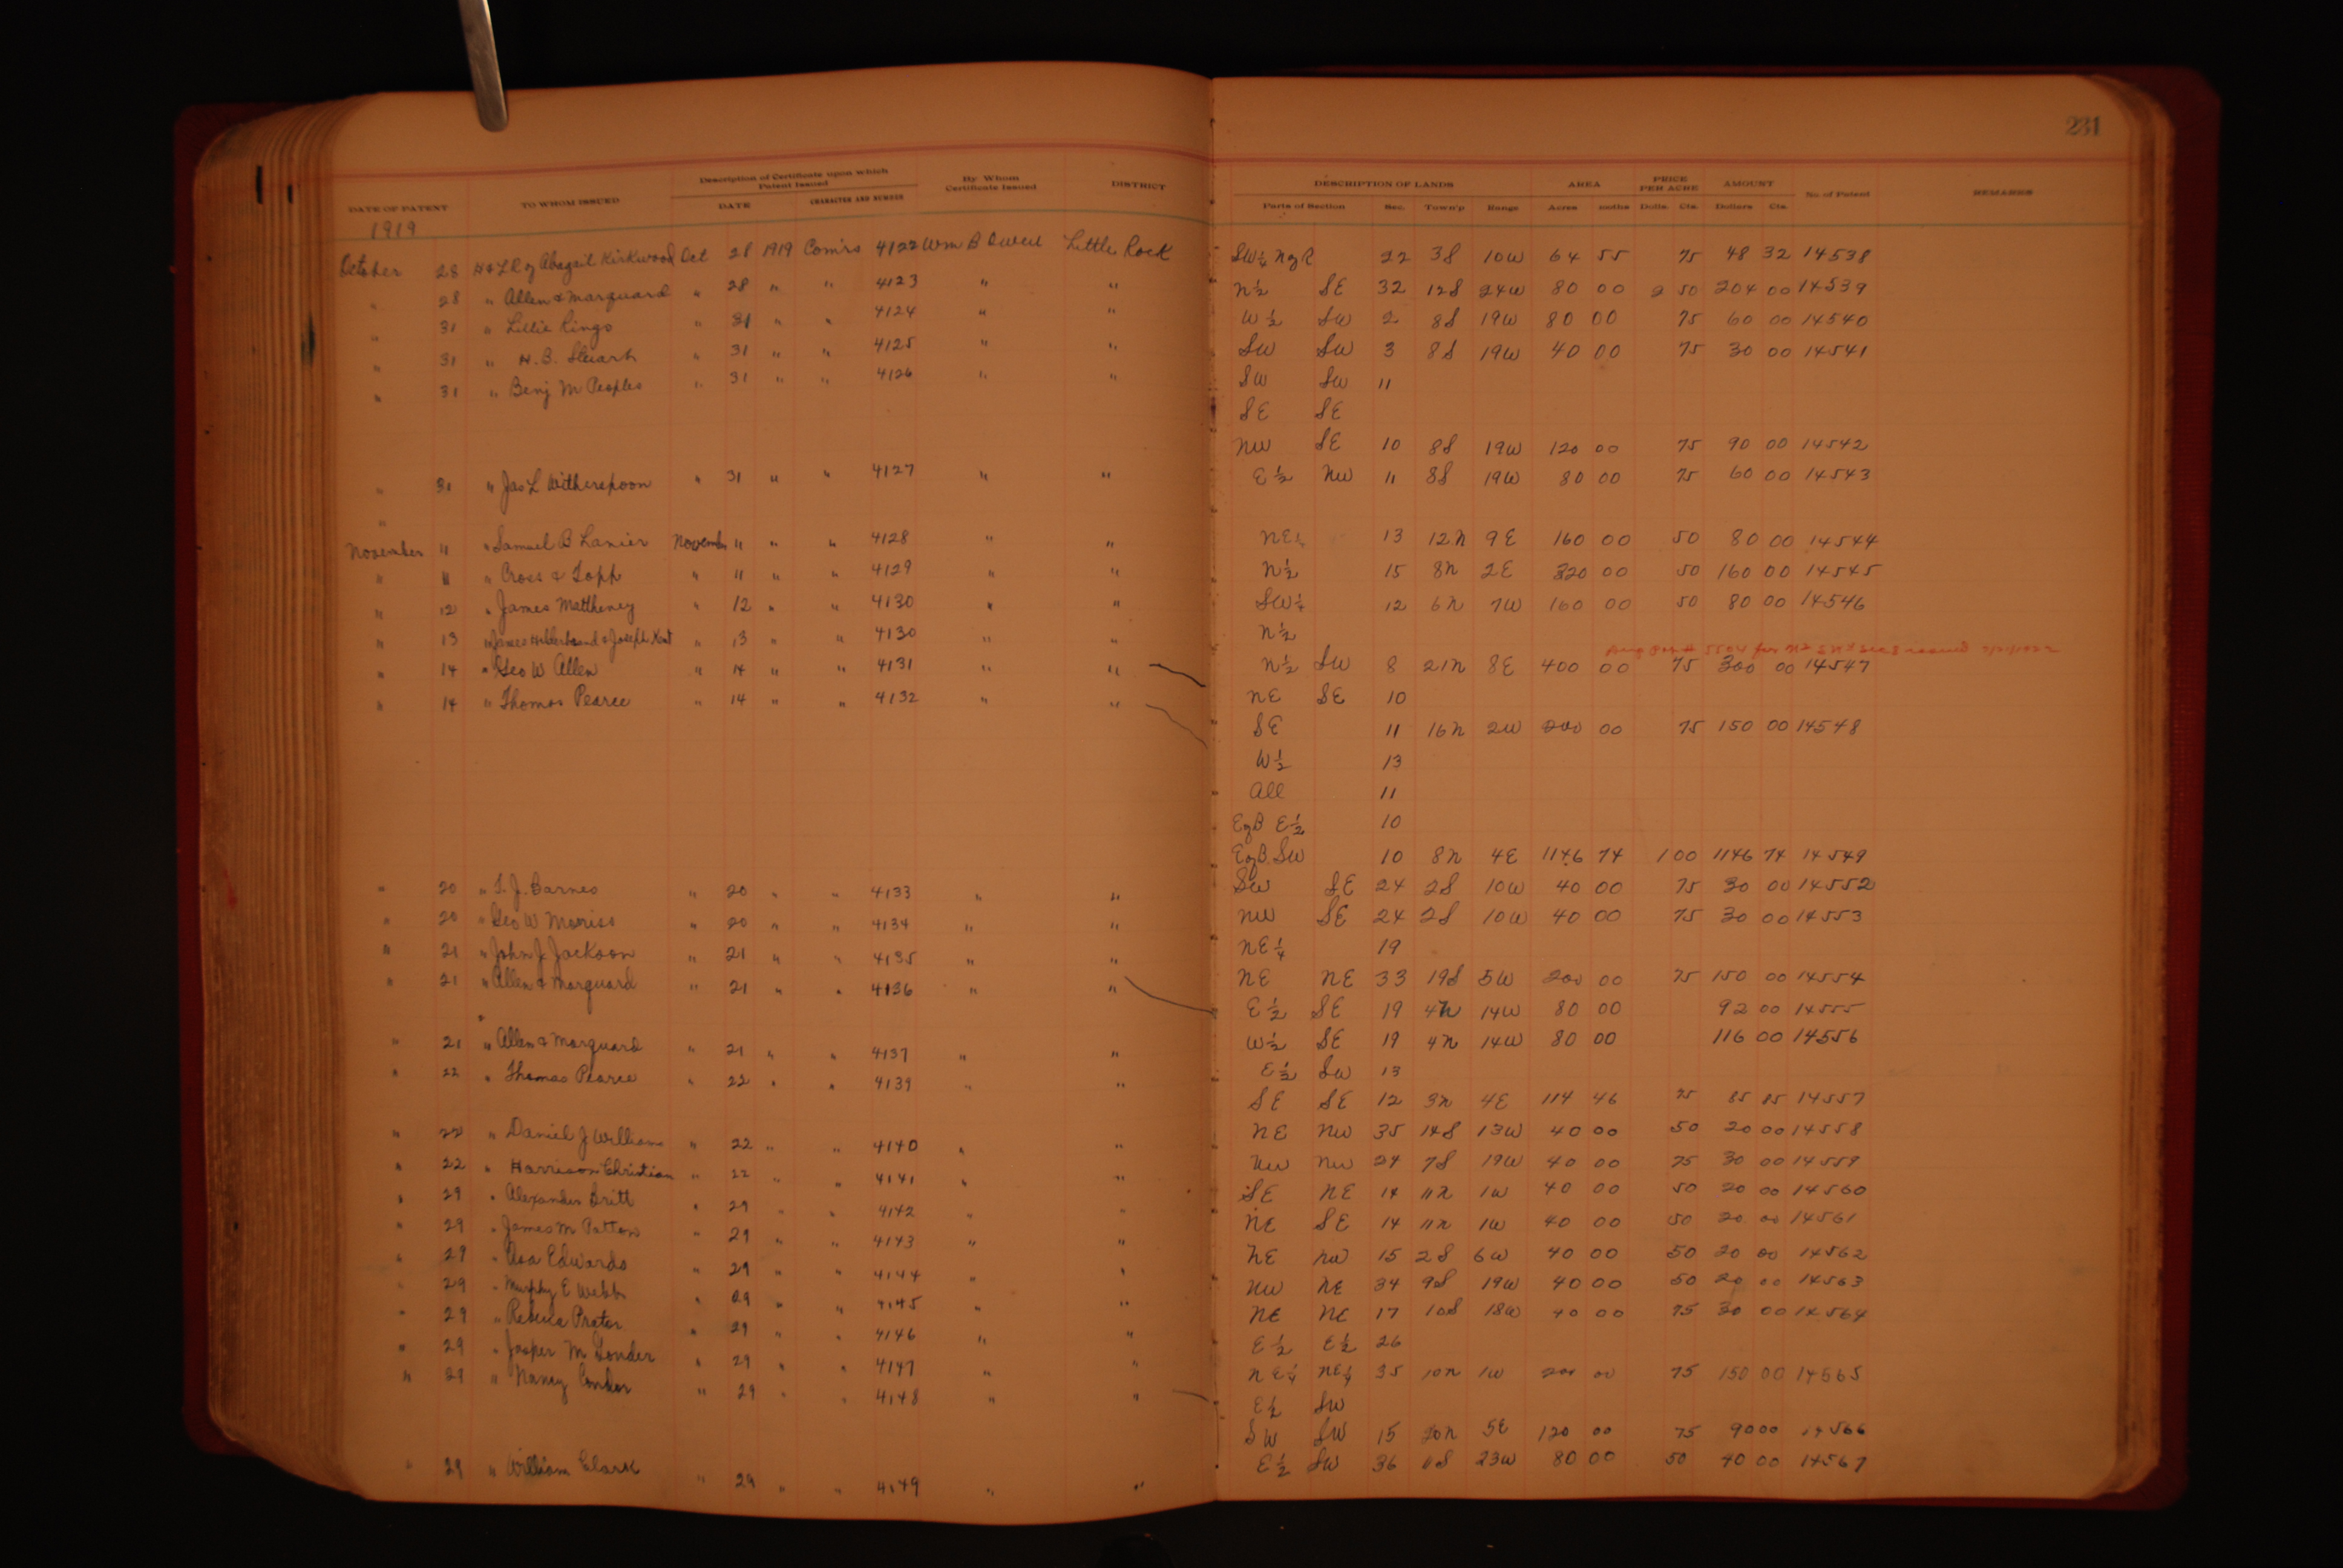 231
DATE OF PATENT TO WHOM ISSUED Description of Certificate upon which Patent Issued DATE CHARACTER AND NUMBER By Whom Certificate Issued DISTRICT
1919
October 28 H & L R of Abagail Kirkwood Oct 28 1919 Com'rs 4122 Wm B Owen Little Rock
" 28 " Allen & Marquard " 28 " " 4123 " "
" 31 " Lillie Ringo " 31 " " 4124 " "
" 31 " H. B. Stuart " 31 " " 4125 " "
" 31 " Benj M Peoples " 31 " " 4126 " "
" 31 " Jas L Witherspoon " 31 " " 4127 " "
"
November 11 " Samuel B Lanier Novembr 11 " " 4128 " "
" 11 " Cross & Topp " 11 " " 4129 " "
" 12 " James Mattheney " 12 " " 4130 " "
" 13 " James & Joseph Kent " 13 " " 4130 " "
" 14 " Geo W Allen " 14 " " 4131 " "
" 14 " Thomas Pearce " 14 " " 4132 " "
" 20 " T. J. Barnes " 20 " " 4133 " "
" 20 " Geo W Morriss " 20 " " 4134 " "
" 21 " John J. Jackson " 21 " " 4135 " "
" 21 " Allen & Marquard " 21 " " 4136 " "
"
" 21 " Allen & Marquard " 21 " " 4137 " "
" 22 " Thomas Pearce " 22 " " 4139 " "
" 22 " Daniel J Williams " 22 " " 4140 " "
" 22 " Harrison Christian " 22 " " 4141 " "
" 29 " Alexander Britt " 29 " " 4142 " "
" 29 " James M Patton " 29 " " 4143 " "
" 29 " Asa Edwards " 29 " " 4144 " "
" 29 " Murphy E Webb " 29 " " 4145 " "
" 29 " Rebecca Prater " 29 " " 4146 " "
" 29 " Jasper M Gonder " 29 " " 4147 " "
" 29 " Nancy Conder " 29 " " 4148 " "
" 29 " William Clark " 29 " " 4149 " "
DESCRIPTION OF LANDS AREA PRICE PER ACRE AMOUNT No. of Patent REMARKS
Parts of Section Sec. Town'p Range Acres Dolls. Cts. Dollars Cts.
SW¼ N of R 22 3S 10W 64 55 75 48 32 14538
N½ SE 32 12S 24W 80 00 2 50 204 00 14539
W½ SW 2 8S 19W 80 00 75 60 00 14540
SW SW 3 8S 19W 40 00 75 30 00 14541
SW SW 11
SE SE
NW SE 10 8S 19W 120 00 75 90 00 14542
E½ NW 11 8S 19W 80 00 75 60 00 14543
NE¼ 13 12N 9E 160 00 50 80 00 14544
N½ 15 8N 2E 320 00 50 160 00 14545
SW¼ 12 6N 7W 160 00 50 80 00 14546
N½
N½ SW 8 21N 8E 400 00 75 300 00 14547
NE SE 10
SE 11 16N 2W 200 00 75 150 00 14548
W½ 13
All 11
E of B E½ 10
E of B. SW 10 8N 4E 1146 74 1 00 1146 74 14549
SW SE 24 2S 10W 40 00 75 30 00 14552
NW SE 24 2S 10W 40 00 75 30 00 14553
NE¼ 19
NE NE 33 19S 5W 200 00 75 150 00 14554
E½ SE 19 4N 14W 80 00 92 00 14555
W½ SE 19 4N 14W 80 00 116 00 14556
E½ SW 13
SE SE 12 3N 4E 114 46 75 85 85 14557
NE NW 35 14S 13W 40 00 50 20 00 14558
NW NW 24 7S 19W 40 00 75 30 00 14559
SE NE 14 11N 1W 40 00 50 20 00 14560
NE SE 14 11N 1W 40 00 50 20 00 14561
NE NW 15 2S 6W 40 00 50 20 00 14562
NW NE 34 9S 19W 40 00 50 20 00 14563
NE NE 17 10S 18W 40 00 75 30 00 14564
E½ E½ 26
NE¼ NE¼ 35 10N 1W 200 00 75 150 00 14565
E½ SW
SW SW 15 20N 5E 120 00 75 90 00 14566
E½ SW 36 23W 80 00 50 40 00 14567